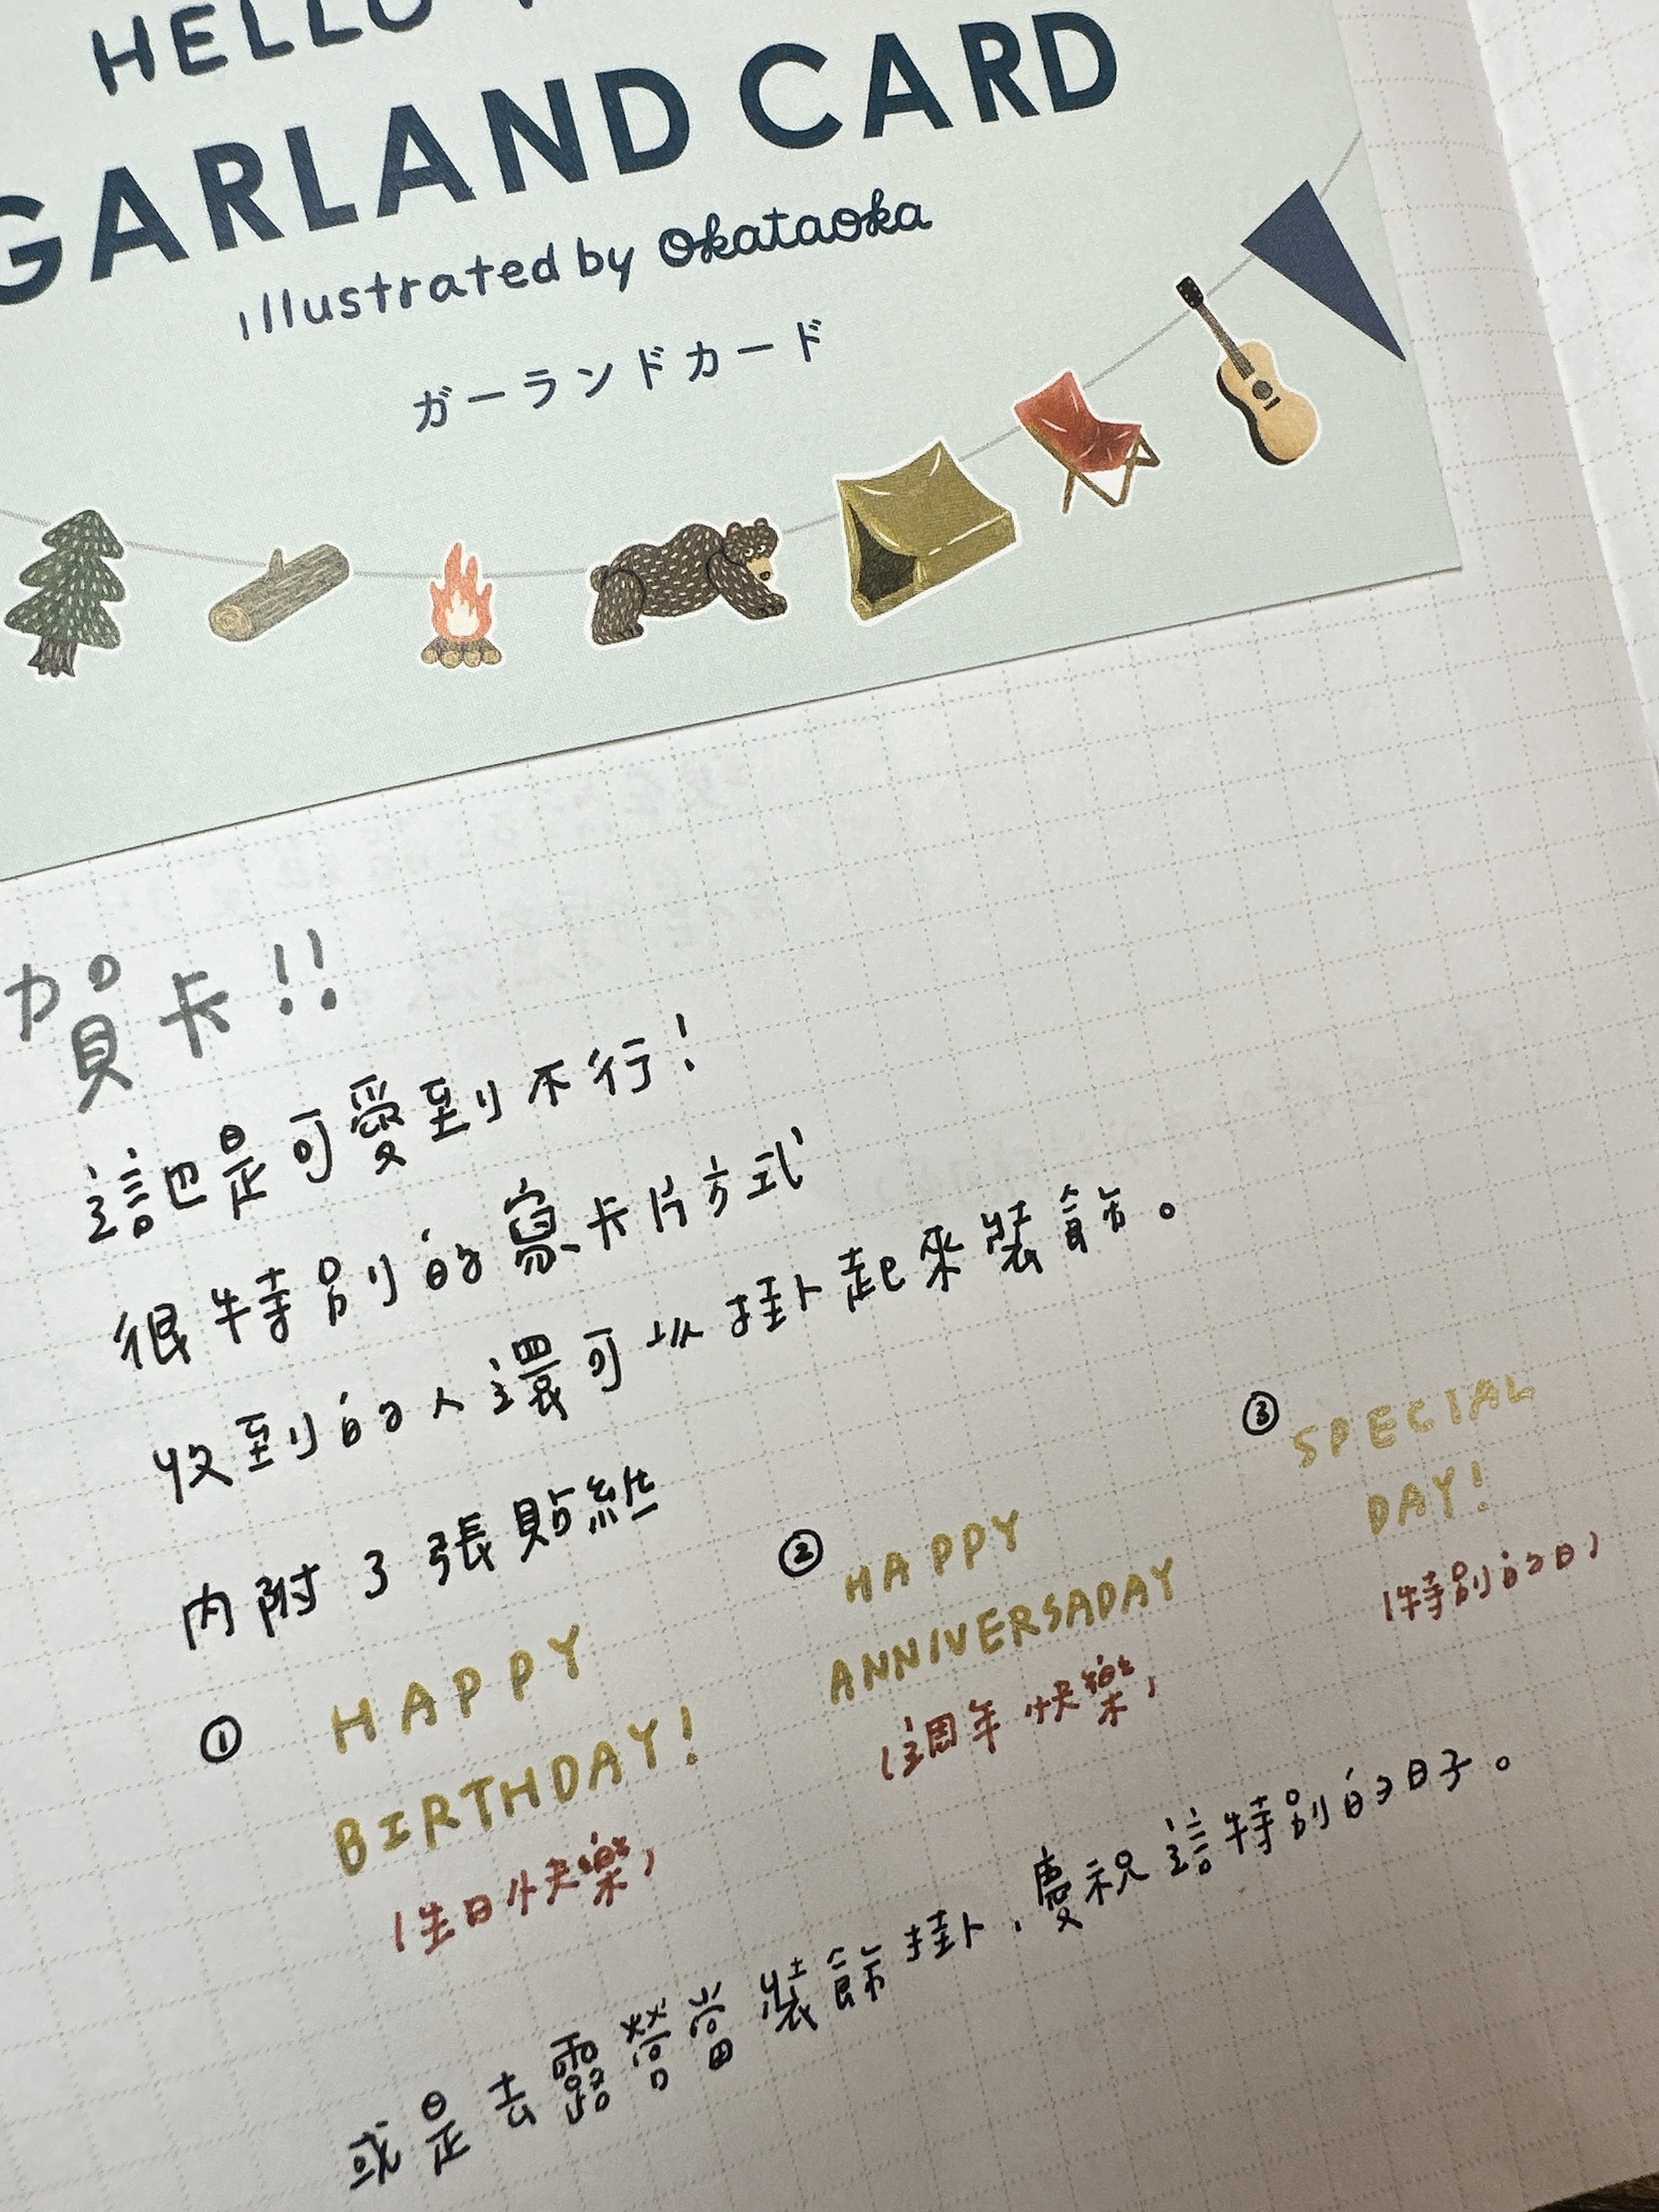 HELLO
GARLAND CARD
illustrated by Okataoka
ガーランドカード
賀卡!!
這也是可愛到不行!
很特別的寫卡片方式
收到的人還可以掛起來裝飾。
內附3張貼紙
① HAPPY
BIRTHDAY!
(生日快樂)
② HAPPY
ANNIVERSADAY
(週年快樂)
③ SPECIAL
DAY!
(特別的日)
或是去露營當裝飾掛,慶祝這特別的日子。